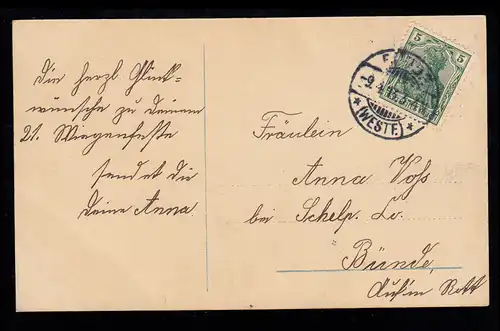 Die herzl Glück-
wünsche zu Deinem
21. Wiegenfeste
sendet dir
Deine Anna.
Fräulein
Anna Voß
bei Schelp. Lo.
Bünde,
Auf'm Rott
5 5
(WESTF.)